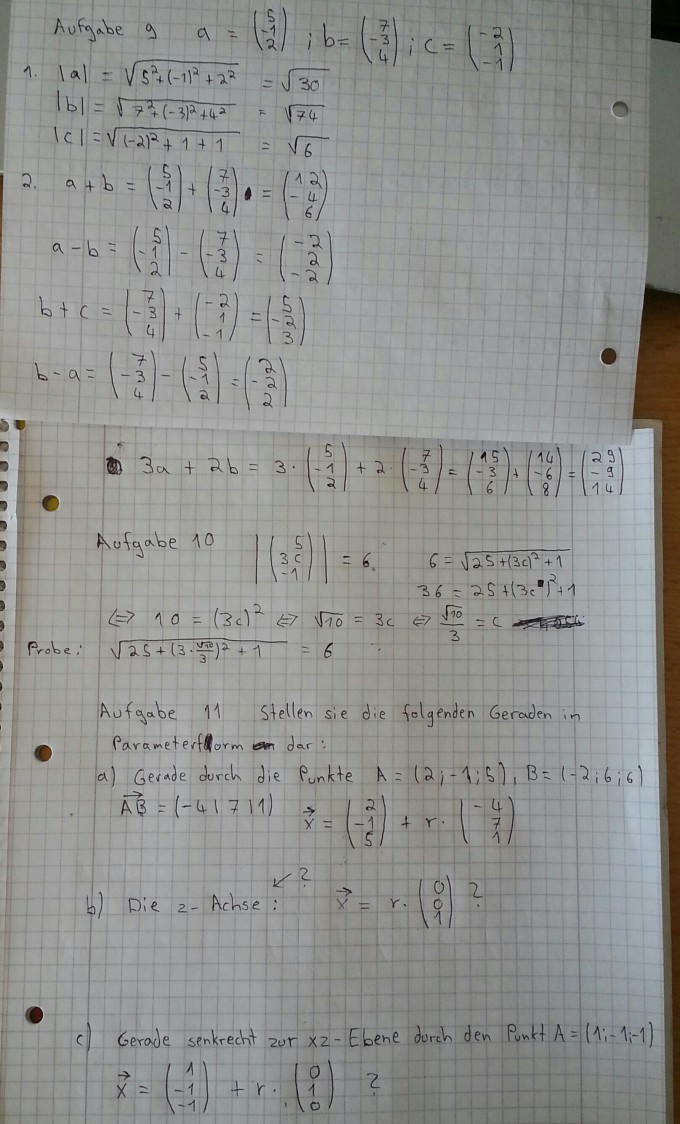 Aufgabe 9 a = (5 -1 2) ; b = (7 -3 4) ; c = (-2 1 -1)
1. |a| = √5²+(-1)²+2² = √30
|b| = √7²+(-3)²+4² = √74
|c| = √(-2)²+1+1 = √6
2. a+b = (5 -1 2) + (7 -3 4) = (12 -4 6)
a-b = (5 -1 2) - (7 -3 4) = (-2 2 -2)
b+c = (7 -3 4) + (-2 1 -1) = (5 -2 3)
b-a = (7 -3 4) - (5 -1 2) = (2 -2 2)
3a + 2b = 3·(5 -1 2) + 2·(7 -3 4) = (15 -3 6) + (14 -6 8) = (29 -9 14)
Aufgabe 10 |(5 3c -1)| = 6. 6 = √25+(3c)²+1
36 = 25+(3c)²+1
⇔ 10 = (3c)² ⇔ √10 = 3c ⇔ √10/3 = c
Probe: √25+(3·√10/3)²+1 = 6
Aufgabe 11 Stellen sie die folgenden Geraden in
Parameterform dar:
a) Gerade durch die Punkte A = (2;-1;5), B = (-2;6;6)
AB→ = (-4|7|1) x→ = (2 -1 5) + r·(-4 7 1)
↙ ?
b) Die z-Achse: x→ = r·(0 0 1) ?
c) Gerade senkrecht zur xz-Ebene durch den Punkt A = (1;-1;-1)
x→ = (1 -1 -1) + r·(0 1 0) ?